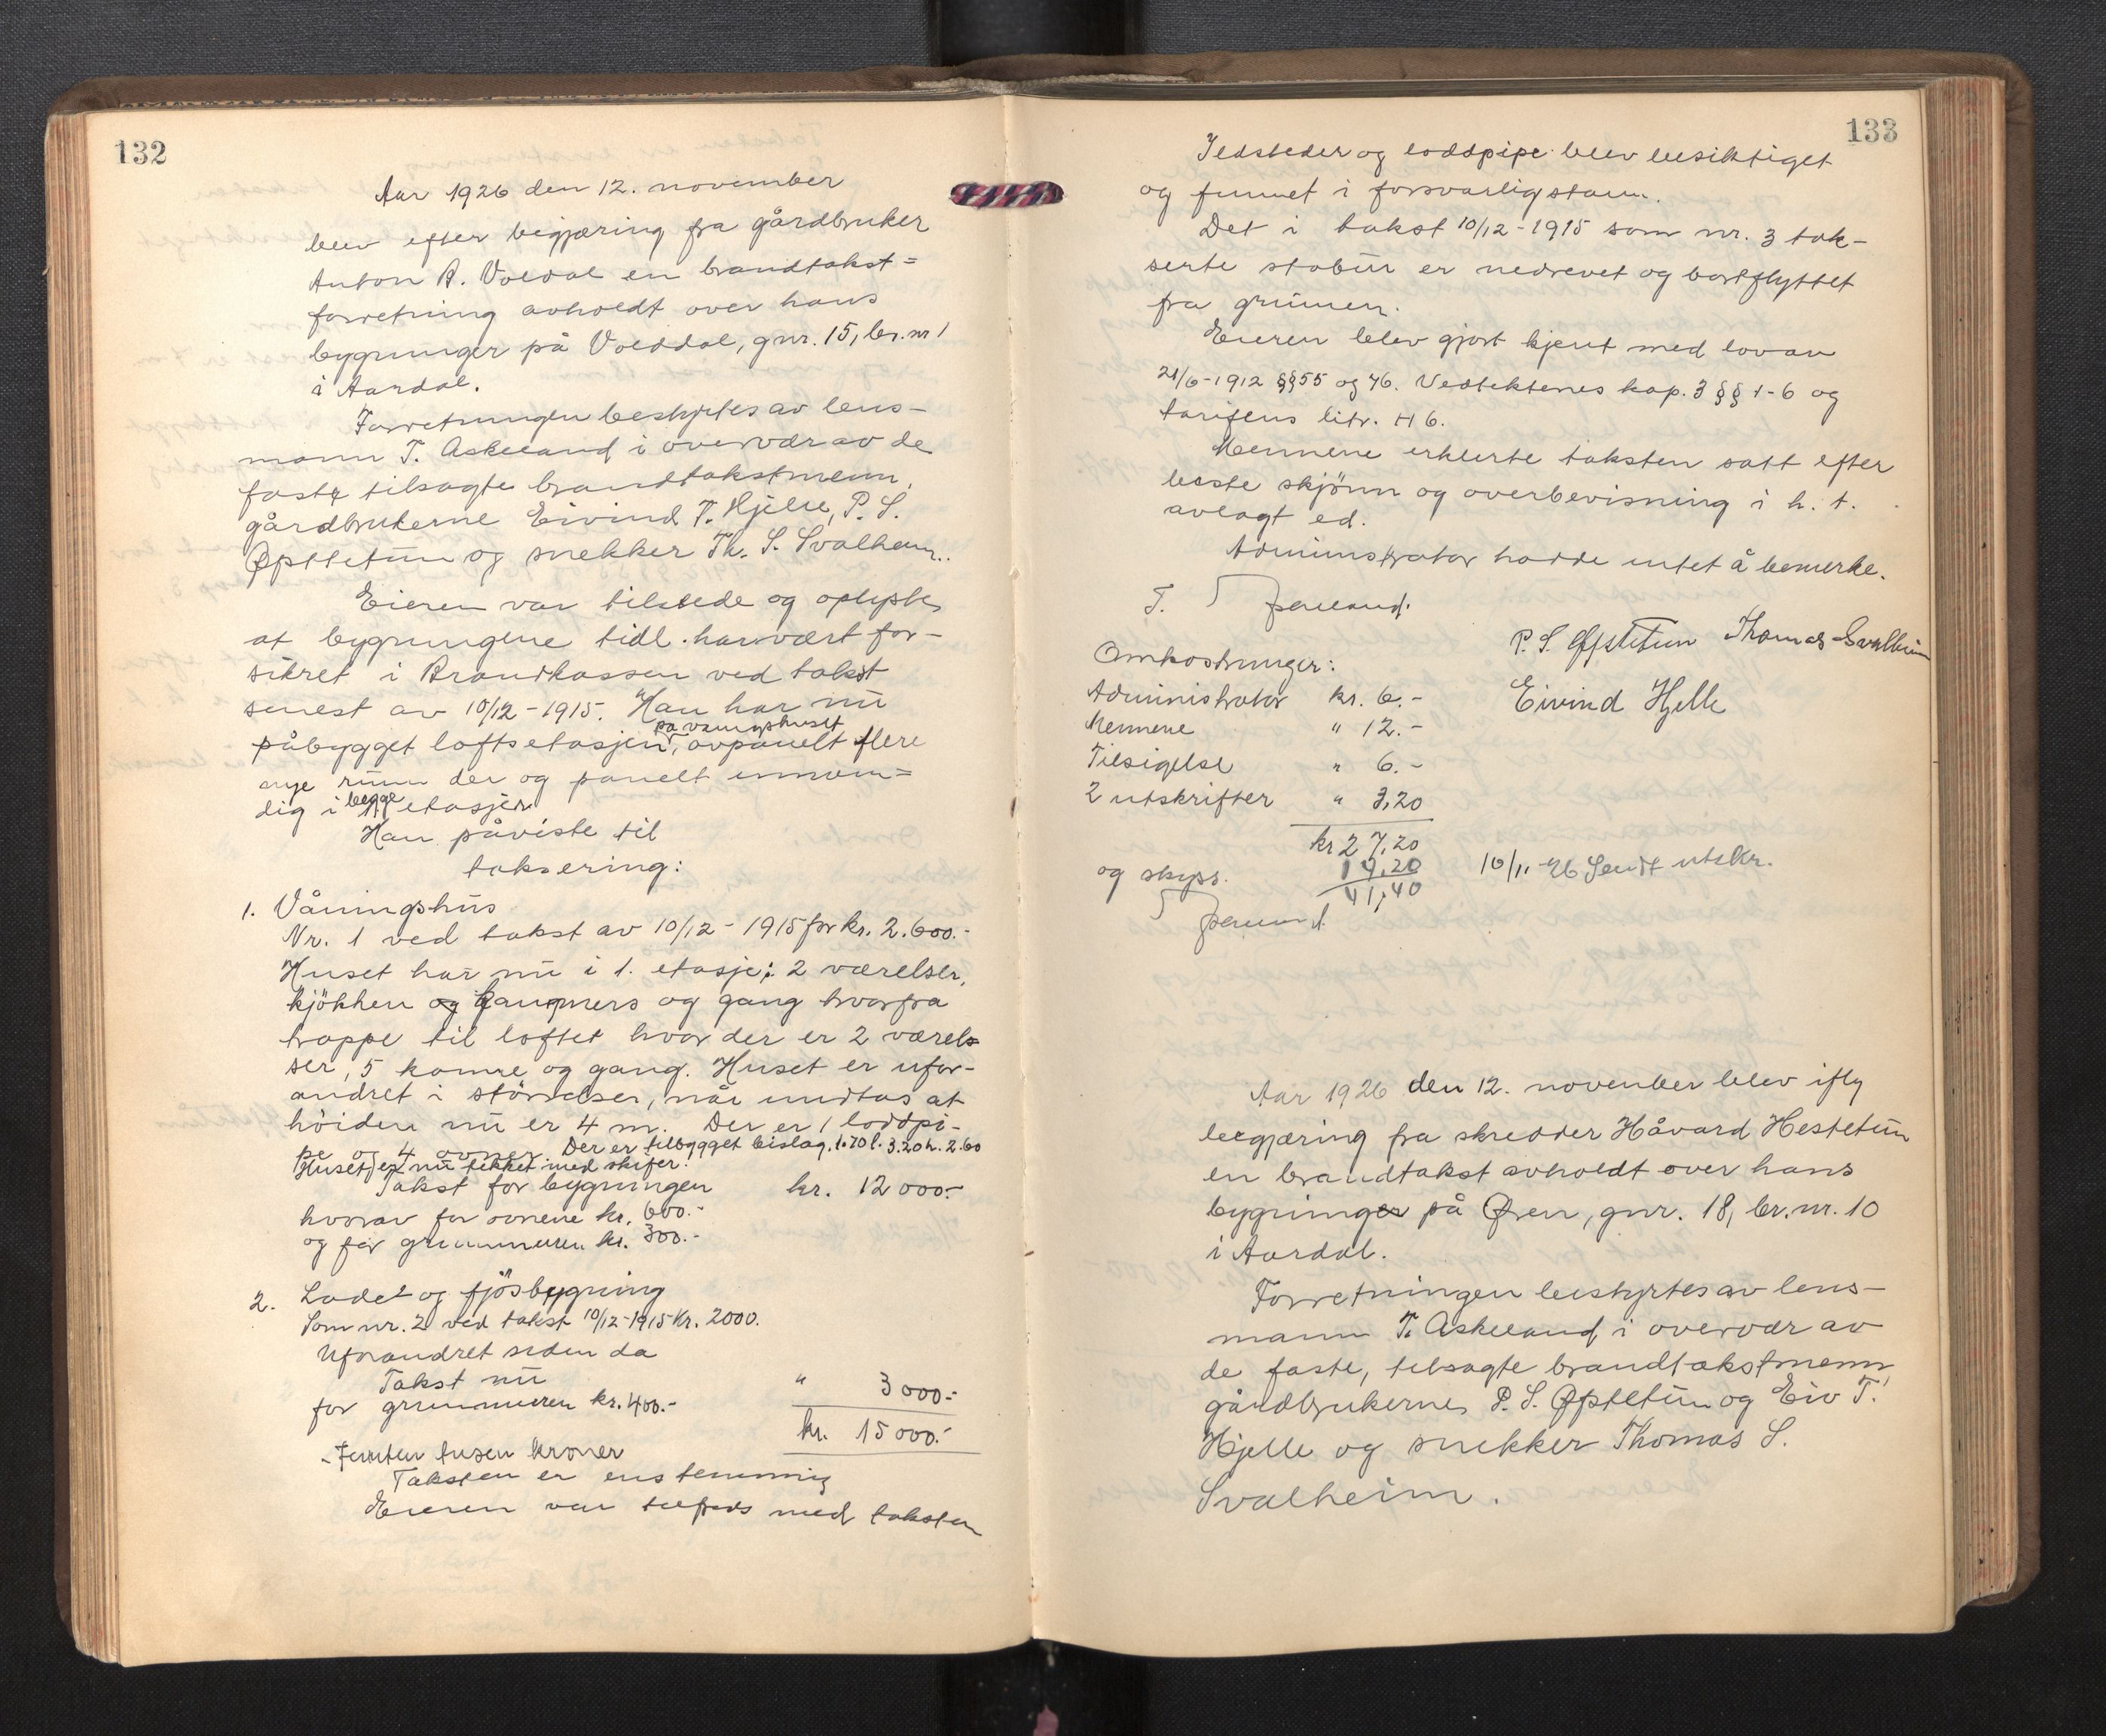 132
Aar 1926 den 12. november
blev efter begjæring fra gårdbruker
Anton A. Voldal en brandtakst=
forretning avholdt over hans
bygninger på Volddal, gnr. 15, br. nr 1
i Aardal.
Forretningen bestyrtes av lens-
mann T. Askeland i overvær av de
faste tilsagte brandtakstmenn,
gårdbrukerne Eivind T. Hjelle, P. S.
Øpstetun og snekker Th. S. Svalheim.
Eieren var tilstede og oplyste
at bygningene tidl. har vært for-
sikret i Brandkassen ved takst
senest av 10/12-1915. Han har nu
på våningshuset
påbygget loftsetasjen, avpanelt flere
nye rum der og panelt innven=
dig i begge etasjer
Han påviste til
taksering:
1. Våningshus
Nr. 1 ved takst av 10/12-1915 for kr. 2.600.-
Huset har nu i 1. etasje: 2 værelser,
kjökken og kammers og gang hvorfra
trappe til loftet hvor der er 2 værel-
ser, 5 kamre og gang. Huset er ufor-
andret i störrelser, når undtas at
höiden nu er 4 m. Der er 1 loddpi-
pe og 4 ovner. Der er tilbygget bislag, l. 1.70 l. 3.20 h. 2.60
Huset er nu tekket med skifer.
Takst for bygningen kr. 12 000.-
hvorav for ovnene kr. 600.-
og for grunnmuren kr. 300.-
2. Ladet og fjösbygning
Som nr. 2 ved takst 10/12-1915 kr. 2000.
Uforandret siden da
Takst nu " 3 000.-
for grunnmuren kr. 400.-
kr. 15 000.-
-Femten tusen kroner
Taksten er enstemmig
Eieren var tilfreds med taksten
133
Ildsteder og loddpipe blev besiktiget
og funnet i forsvarlig stann.
Det i takst 10/12-1915 som nr. 3 tak-
serte stabur er nedrevet og bortflyttet
fra grunnen.
Eieren blev gjort kjent med lov av
21/6-1912 §§ 55 og 76. Vedtektenes kap. 3 §§ 1-6 og
tariffens litr. H 6.
Mennene erklerte taksten satt efter
beste skjönn og overbevisning i h. t.
avlagt ed.
Administrator hadde intet å bemerke.
T. Askeland.
P. S. Øpstetun Thomas Svalheim
Eivind Hjelle
Omkostninger:
Administrator kr. 6.-
Mennene " 12.-
Tilsigelse " 6.-
2 utskrifter " 3,20
kr 27,20
og skyss. 14,20
41,40
10/11-26 Sendt utskr.
Aar 1926 den 12. november blev iflg
begjæring fra skredder Håvard Hestetun
en brandtakst avholdt over hans
bygninger på Øren, gnr. 18, br. nr. 10
i Aardal.
Forretningen bestyrtes av lens-
mann T. Askeland i overvær av
de faste, tilsagte brandtakstmenn
gårdbrukerne P. S. Øpstetun og Eiv T.
Hjelle og snekker Thomas S.
Svalheim.